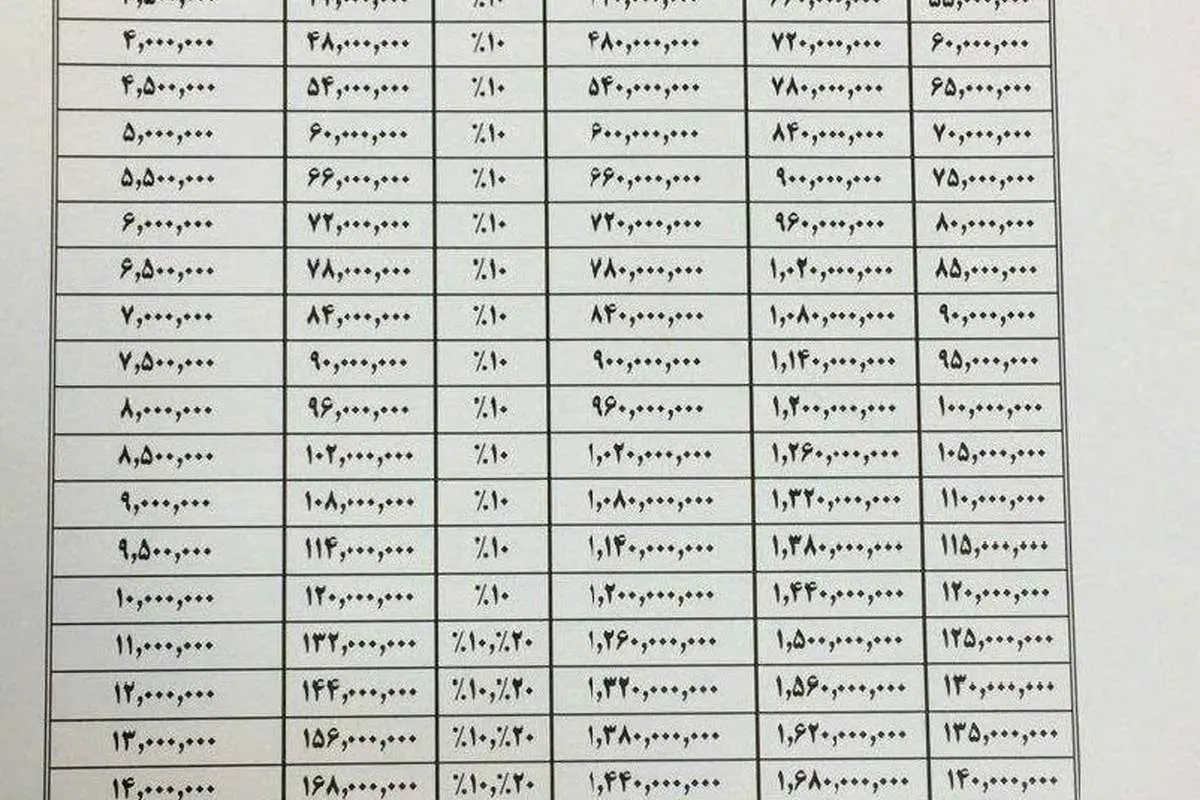 ۶۰,۰۰۰,۰۰۰ ۷۲۰,۰۰۰,۰۰۰ ۴۸۰,۰۰۰,۰۰۰ ٪۱۰ ۴۸,۰۰۰,۰۰۰ ۴,۰۰۰,۰۰۰
۶۵,۰۰۰,۰۰۰ ۷۸۰,۰۰۰,۰۰۰ ۵۴۰,۰۰۰,۰۰۰ ٪۱۰ ۵۴,۰۰۰,۰۰۰ ۴,۵۰۰,۰۰۰
۷۰,۰۰۰,۰۰۰ ۸۴۰,۰۰۰,۰۰۰ ۶۰۰,۰۰۰,۰۰۰ ٪۱۰ ۶۰,۰۰۰,۰۰۰ ۵,۰۰۰,۰۰۰
۷۵,۰۰۰,۰۰۰ ۹۰۰,۰۰۰,۰۰۰ ۶۶۰,۰۰۰,۰۰۰ ٪۱۰ ۶۶,۰۰۰,۰۰۰ ۵,۵۰۰,۰۰۰
۸۰,۰۰۰,۰۰۰ ۹۶۰,۰۰۰,۰۰۰ ۷۲۰,۰۰۰,۰۰۰ ٪۱۰ ۷۲,۰۰۰,۰۰۰ ۶,۰۰۰,۰۰۰
۸۵,۰۰۰,۰۰۰ ۱,۰۲۰,۰۰۰,۰۰۰ ۷۸۰,۰۰۰,۰۰۰ ٪۱۰ ۷۸,۰۰۰,۰۰۰ ۶,۵۰۰,۰۰۰
۹۰,۰۰۰,۰۰۰ ۱,۰۸۰,۰۰۰,۰۰۰ ۸۴۰,۰۰۰,۰۰۰ ٪۱۰ ۸۴,۰۰۰,۰۰۰ ۷,۰۰۰,۰۰۰
۹۵,۰۰۰,۰۰۰ ۱,۱۴۰,۰۰۰,۰۰۰ ۹۰۰,۰۰۰,۰۰۰ ٪۱۰ ۹۰,۰۰۰,۰۰۰ ۷,۵۰۰,۰۰۰
۱۰۰,۰۰۰,۰۰۰ ۱,۲۰۰,۰۰۰,۰۰۰ ۹۶۰,۰۰۰,۰۰۰ ٪۱۰ ۹۶,۰۰۰,۰۰۰ ۸,۰۰۰,۰۰۰
۱۰۵,۰۰۰,۰۰۰ ۱,۲۶۰,۰۰۰,۰۰۰ ۱,۰۲۰,۰۰۰,۰۰۰ ٪۱۰ ۱۰۲,۰۰۰,۰۰۰ ۸,۵۰۰,۰۰۰
۱۱۰,۰۰۰,۰۰۰ ۱,۳۲۰,۰۰۰,۰۰۰ ۱,۰۸۰,۰۰۰,۰۰۰ ٪۱۰ ۱۰۸,۰۰۰,۰۰۰ ۹,۰۰۰,۰۰۰
۱۱۵,۰۰۰,۰۰۰ ۱,۳۸۰,۰۰۰,۰۰۰ ۱,۱۴۰,۰۰۰,۰۰۰ ٪۱۰ ۱۱۴,۰۰۰,۰۰۰ ۹,۵۰۰,۰۰۰
۱۲۰,۰۰۰,۰۰۰ ۱,۴۴۰,۰۰۰,۰۰۰ ۱,۲۰۰,۰۰۰,۰۰۰ ٪۱۰ ۱۲۰,۰۰۰,۰۰۰ ۱۰,۰۰۰,۰۰۰
۱۲۵,۰۰۰,۰۰۰ ۱,۵۰۰,۰۰۰,۰۰۰ ۱,۲۶۰,۰۰۰,۰۰۰ ٪۱۰,٪۲۰ ۱۳۲,۰۰۰,۰۰۰ ۱۱,۰۰۰,۰۰۰
۱۳۰,۰۰۰,۰۰۰ ۱,۵۶۰,۰۰۰,۰۰۰ ۱,۳۲۰,۰۰۰,۰۰۰ ٪۱۰,٪۲۰ ۱۴۴,۰۰۰,۰۰۰ ۱۲,۰۰۰,۰۰۰
۱۳۵,۰۰۰,۰۰۰ ۱,۶۲۰,۰۰۰,۰۰۰ ۱,۳۸۰,۰۰۰,۰۰۰ ٪۱۰,٪۲۰ ۱۵۶,۰۰۰,۰۰۰ ۱۳,۰۰۰,۰۰۰
۱۴۰,۰۰۰,۰۰۰ ۱,۶۸۰,۰۰۰,۰۰۰ ۱,۴۴۰,۰۰۰,۰۰۰ ٪۱۰,٪۲۰ ۱۶۸,۰۰۰,۰۰۰ ۱۴,۰۰۰,۰۰۰